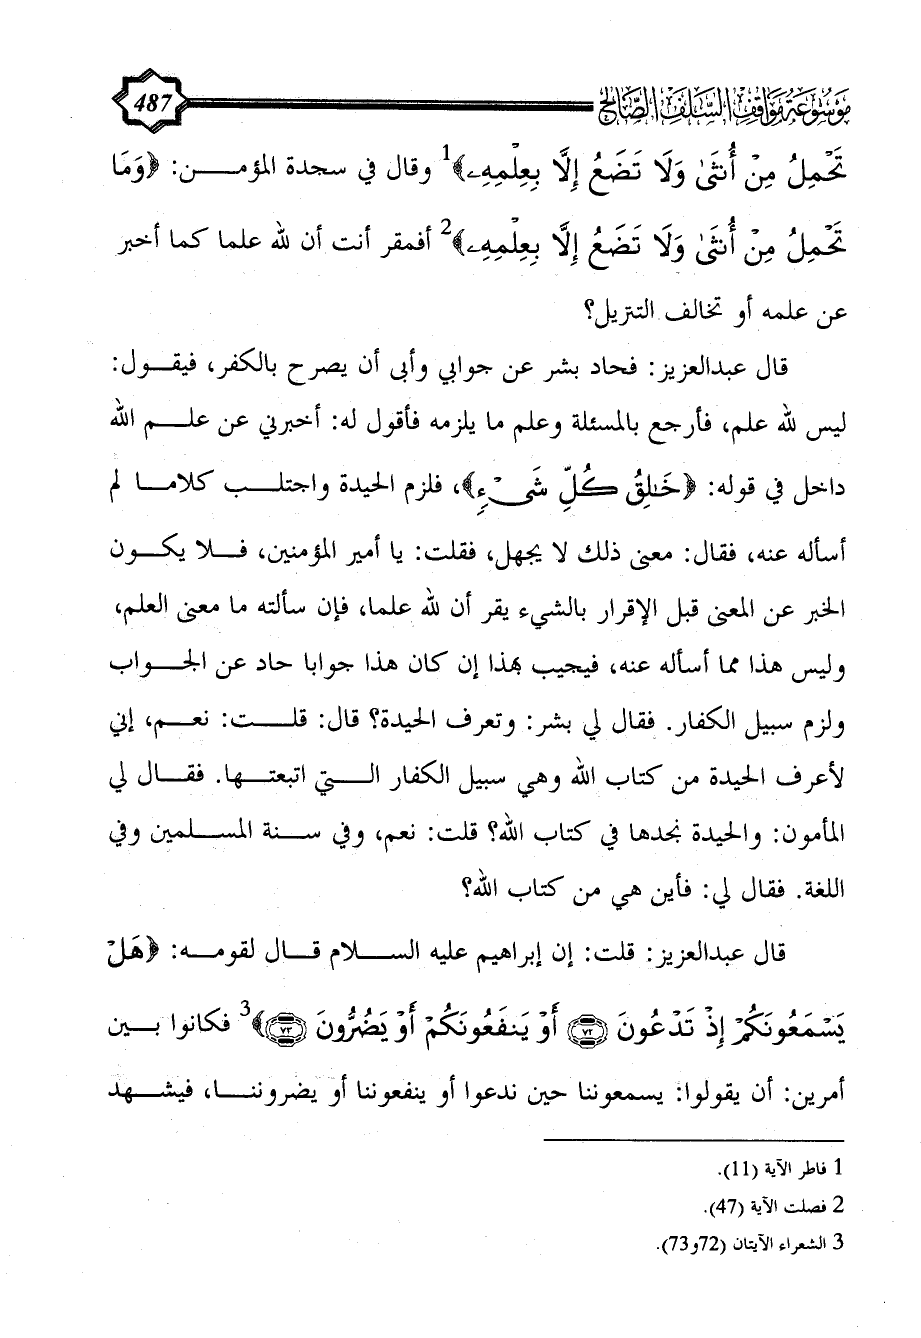 موسوعة مواقف السلف الصالح 487
تَحْمِلُ مِنْ أُنثَىٰ وَلَا تَضَعُ إِلَّا بِعِلْمِهِۦ﴾1 وقال في سجدة المؤمن: ﴿وَمَا
تَحْمِلُ مِنْ أُنثَىٰ وَلَا تَضَعُ إِلَّا بِعِلْمِهِۦ﴾2 أفمقر أنت أن لله علما كما أخبر
عن علمه أو تخالف التنزيل؟
قال عبدالعزيز: فحاد بشر عن جوابي وأبى أن يصرح بالكفر، فيقول:
ليس لله علم، فأرجع بالمسئلة وعلم ما يلزمه فأقول له: أخبرني عن علم الله
داخل في قوله: ﴿خَٰلِقُ كُلِّ شَىْءٍ﴾، فلزم الحيدة واجتلب كلاما لم
أسأله عنه، فقال: معنى ذلك لا يجهل، فقلت: يا أمير المؤمنين، فلا يكون
الخبر عن المعنى قبل الإقرار بالشيء يقر أن لله علما، فإن سألته ما معنى العلم،
وليس هذا مما أسأله عنه، فيجيب بهذا إن كان هذا جوابا حاد عن الجواب
ولزم سبيل الكفار. فقال لي بشر: وتعرف الحيدة؟ قال: قلت: نعم، إني
لأعرف الحيدة من كتاب الله وهي سبيل الكفار التي اتبعتها. فقال لي
المأمون: والحيدة نجدها في كتاب الله؟ قلت: نعم، وفي سنة المسلمين وفي
اللغة. فقال لي: فأين هي من كتاب الله؟
قال عبدالعزيز: قلت: إن إبراهيم عليه السلام قال لقومه: ﴿هَلْ
يَسْمَعُونَكُمْ إِذْ تَدْعُونَ ٧٢ أَوْ يَنفَعُونَكُمْ أَوْ يَضُرُّونَ ٧٣﴾3 فكانوا بين
أمرين: أن يقولوا: يسمعوننا حين ندعوا أو ينفعوننا أو يضروننا، فيشهد
1 فاطر الآية (11).
2 فصلت الآية (47).
3 الشعراء الآيتان (72و73).